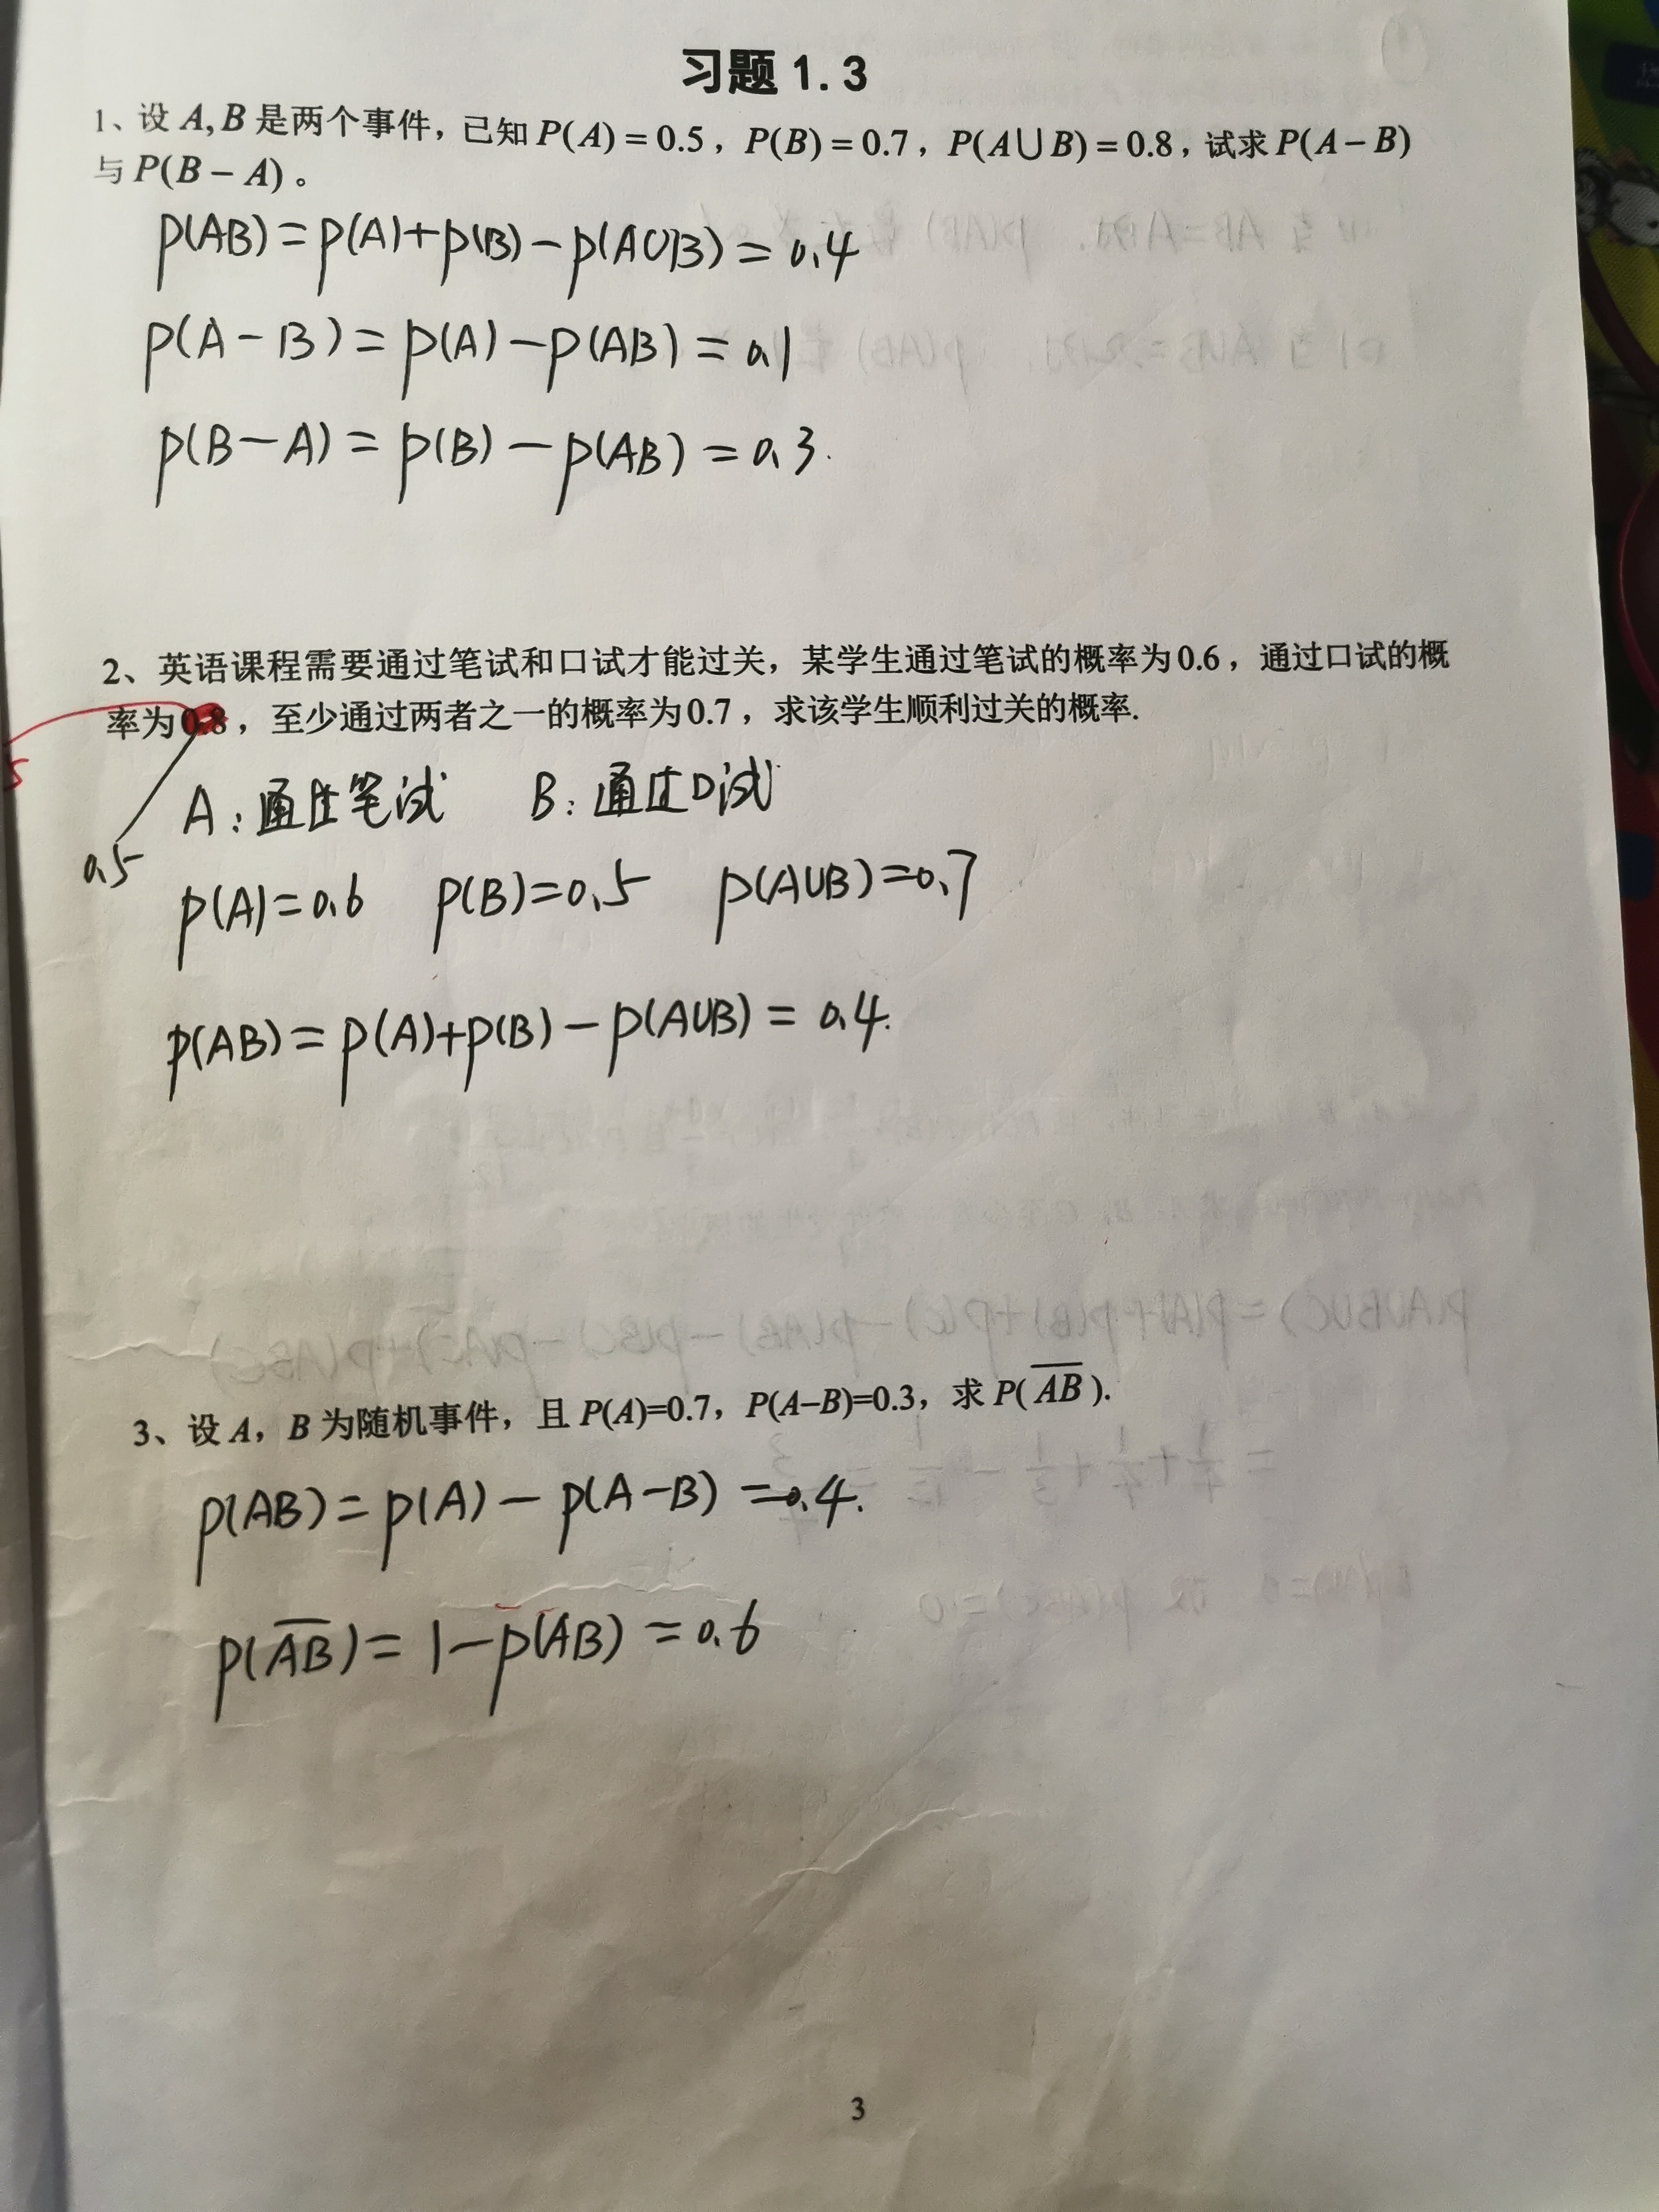 习题 1.3
1、设 A, B 是两个事件，已知 P(A) = 0.5，P(B) = 0.7，P(A∪B) = 0.8，试求 P(A − B)
与 P(B − A)。
p(AB) = p(A)+p(B) − p(A∪B) = 0.4
p(A − B) = p(A) − p(AB) = 0.1
p(B − A) = p(B) − p(AB) = 0.3.
2、英语课程需要通过笔试和口试才能过关，某学生通过笔试的概率为 0.6，通过口试的概
率为 0.8，至少通过两者之一的概率为 0.7，求该学生顺利过关的概率.
5
A：通过笔试 B：通过口试
0.5
p(A)=0.6 p(B)=0.5 p(A∪B)=0.7
p(AB) = p(A)+p(B) − p(A∪B) = 0.4.
3、设 A，B 为随机事件，且 P(A)=0.7，P(A−B)=0.3，求 P( \overline{AB} ).
p(AB) = p(A) − p(A−B) = 0.4.
p(\overline{AB}) = 1 − p(AB) = 0.6
3